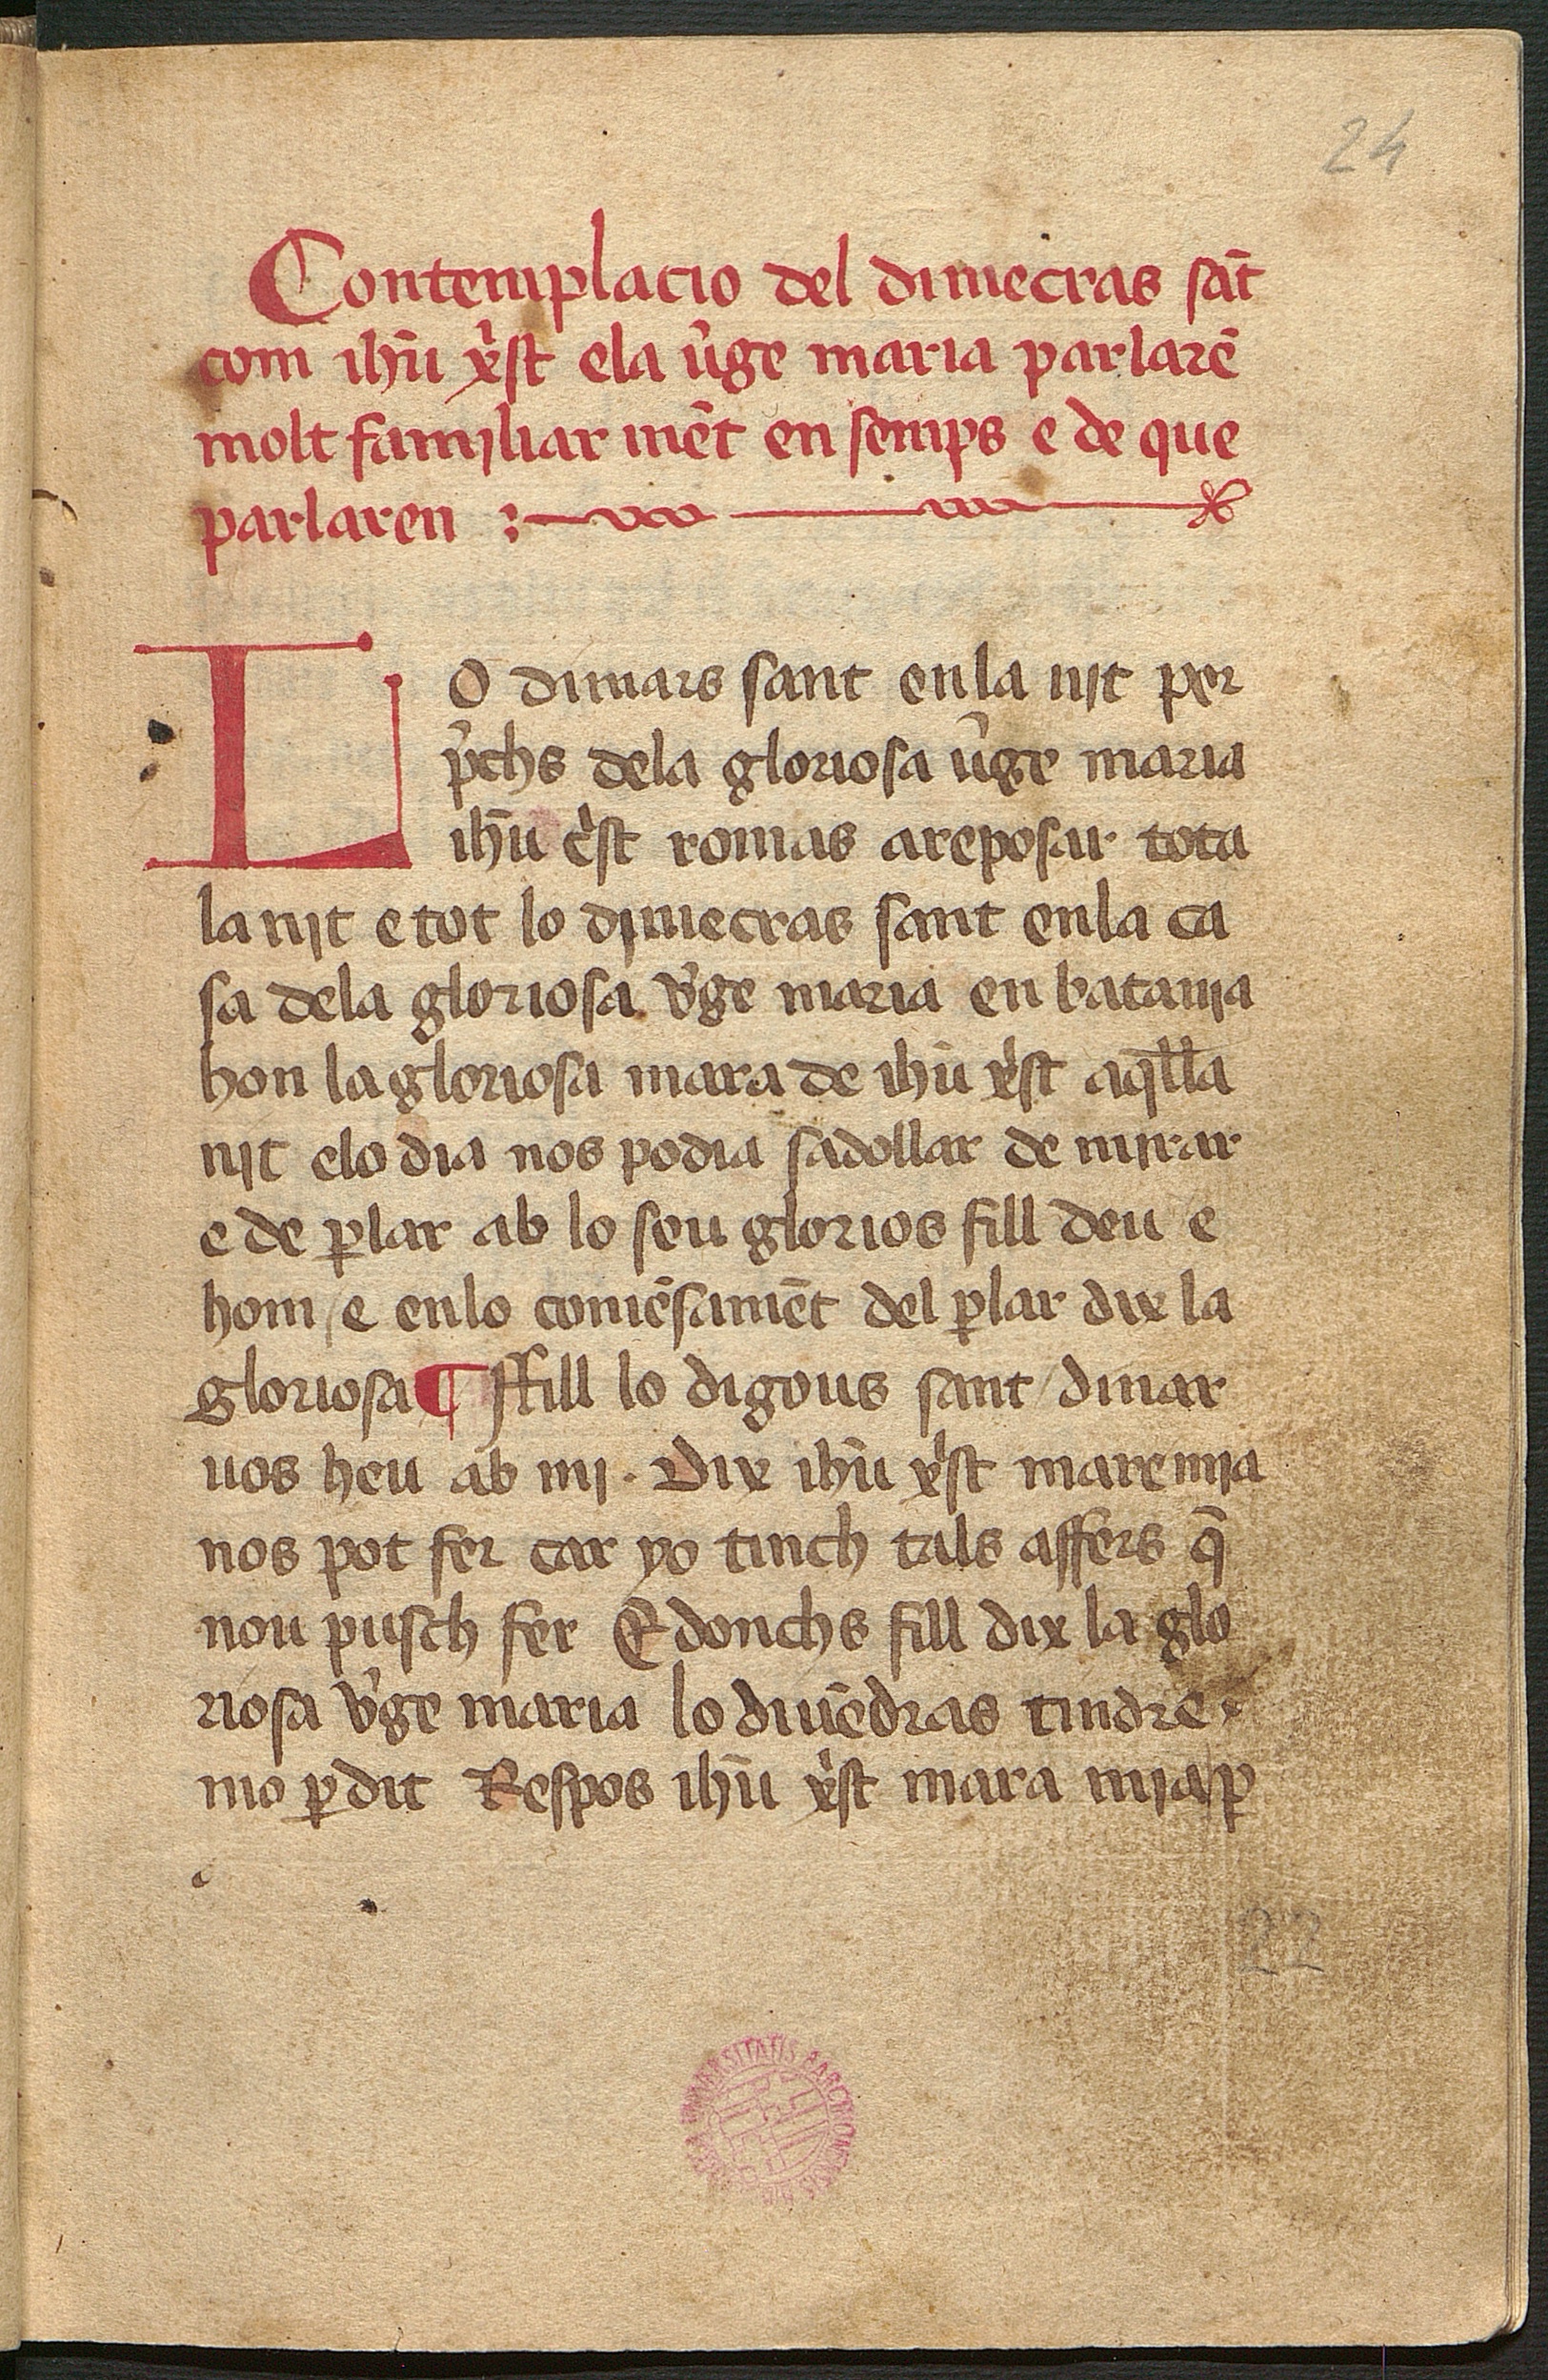 24
Contemplacio del dimecras sāt
com ihū xp̄st ela v̄ge maria parlarē
molt familiar mēt en semps e de que
parlaren :
LO dimars sant enla nit per
p̄chs dela gloriosa v̄ge maria
ihū x̄st romas areposar tota
la nit e tot lo dimecras sant enla ca
sa dela gloriosa v̄ge maria en batania
hon la gloriosa mara de ihū x̄st aq̄lla
nit elo dia nos podia sadollar de mirar
e de ꝑlar ab lo seu glorios fill deu e
hom / e enlo comēsamēt del ꝑlar dix la
gloriosa ¶ ffill lo digous sant / dinar
uos heu ab mi . Dix ihū x̄st mare mia
nos pot fer car yo tinch tals affers q̄
nou pusch fer E donchs fill dix la glo
riosa v̄ge maria lo divēdras tindrē
mo ꝑdit Respos ihū x̄st mara mia / ꝑ
22